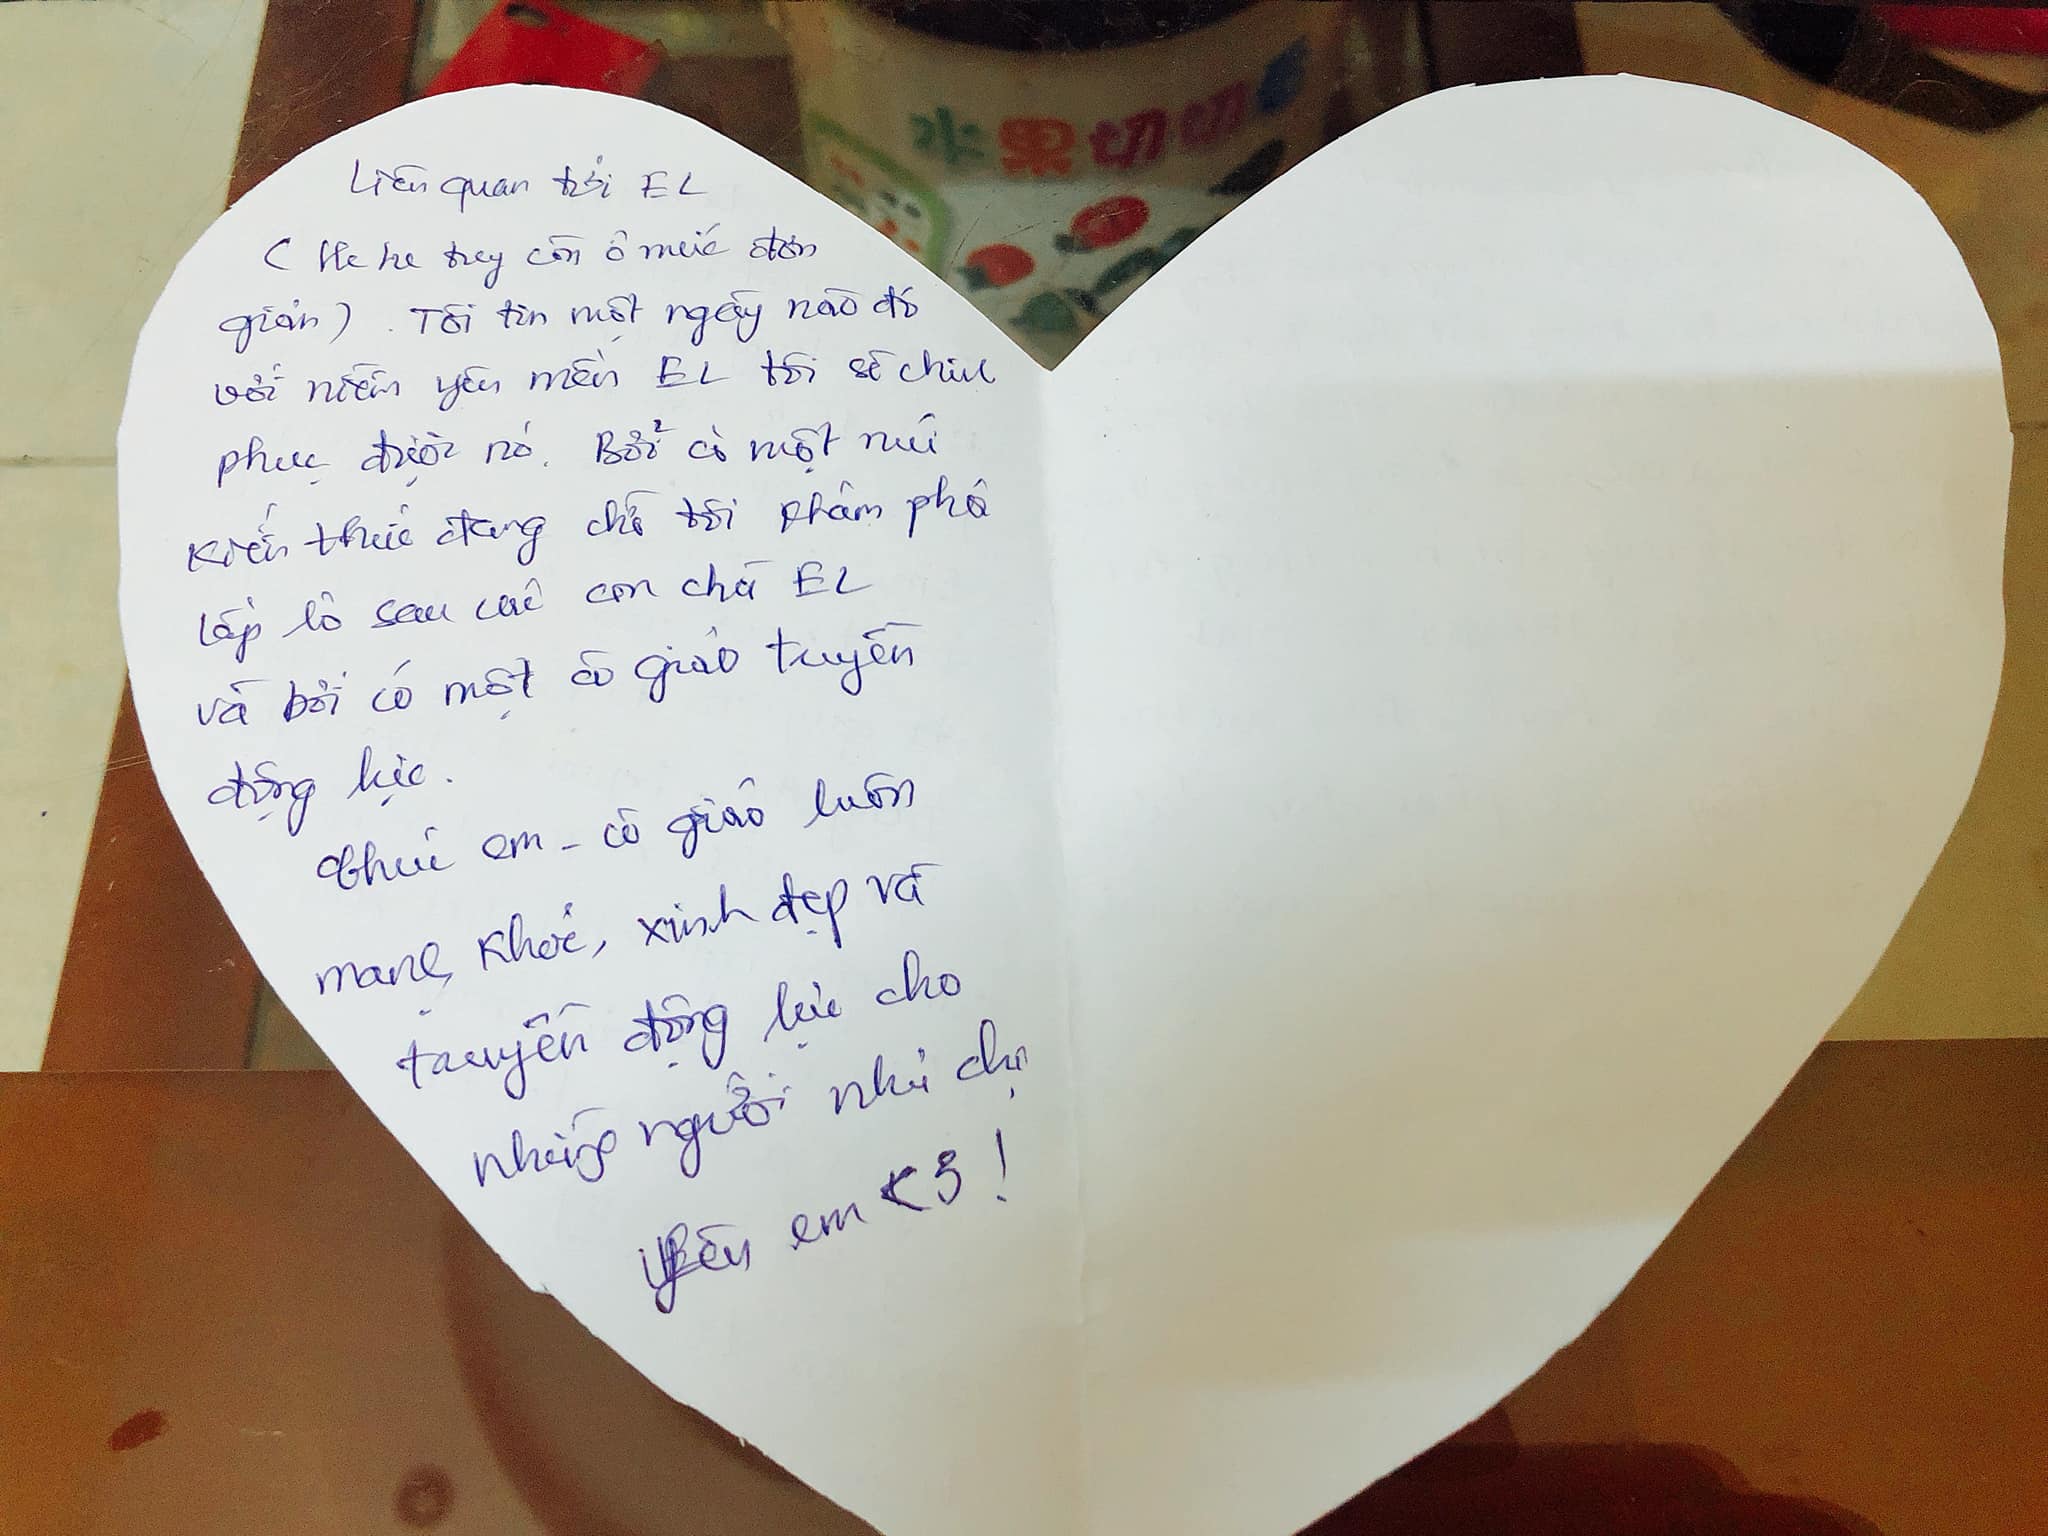 水果切切
Liên quan tới EL
( He he tuy còn ở mức đơn
giản). Tôi tin một ngày nào đó
với niềm yêu mến EL tôi sẽ chinh
phục được nó. Bởi có một núi
kiến thức đang chờ tôi khám phá
lấp ló sau cái con chữ EL
và bởi có một cô giáo truyền
động lực.
Chúc em - cô giáo luôn
mạnh khoẻ, xinh đẹp và
truyền động lực cho
những người như chị
Yêu em <3 !